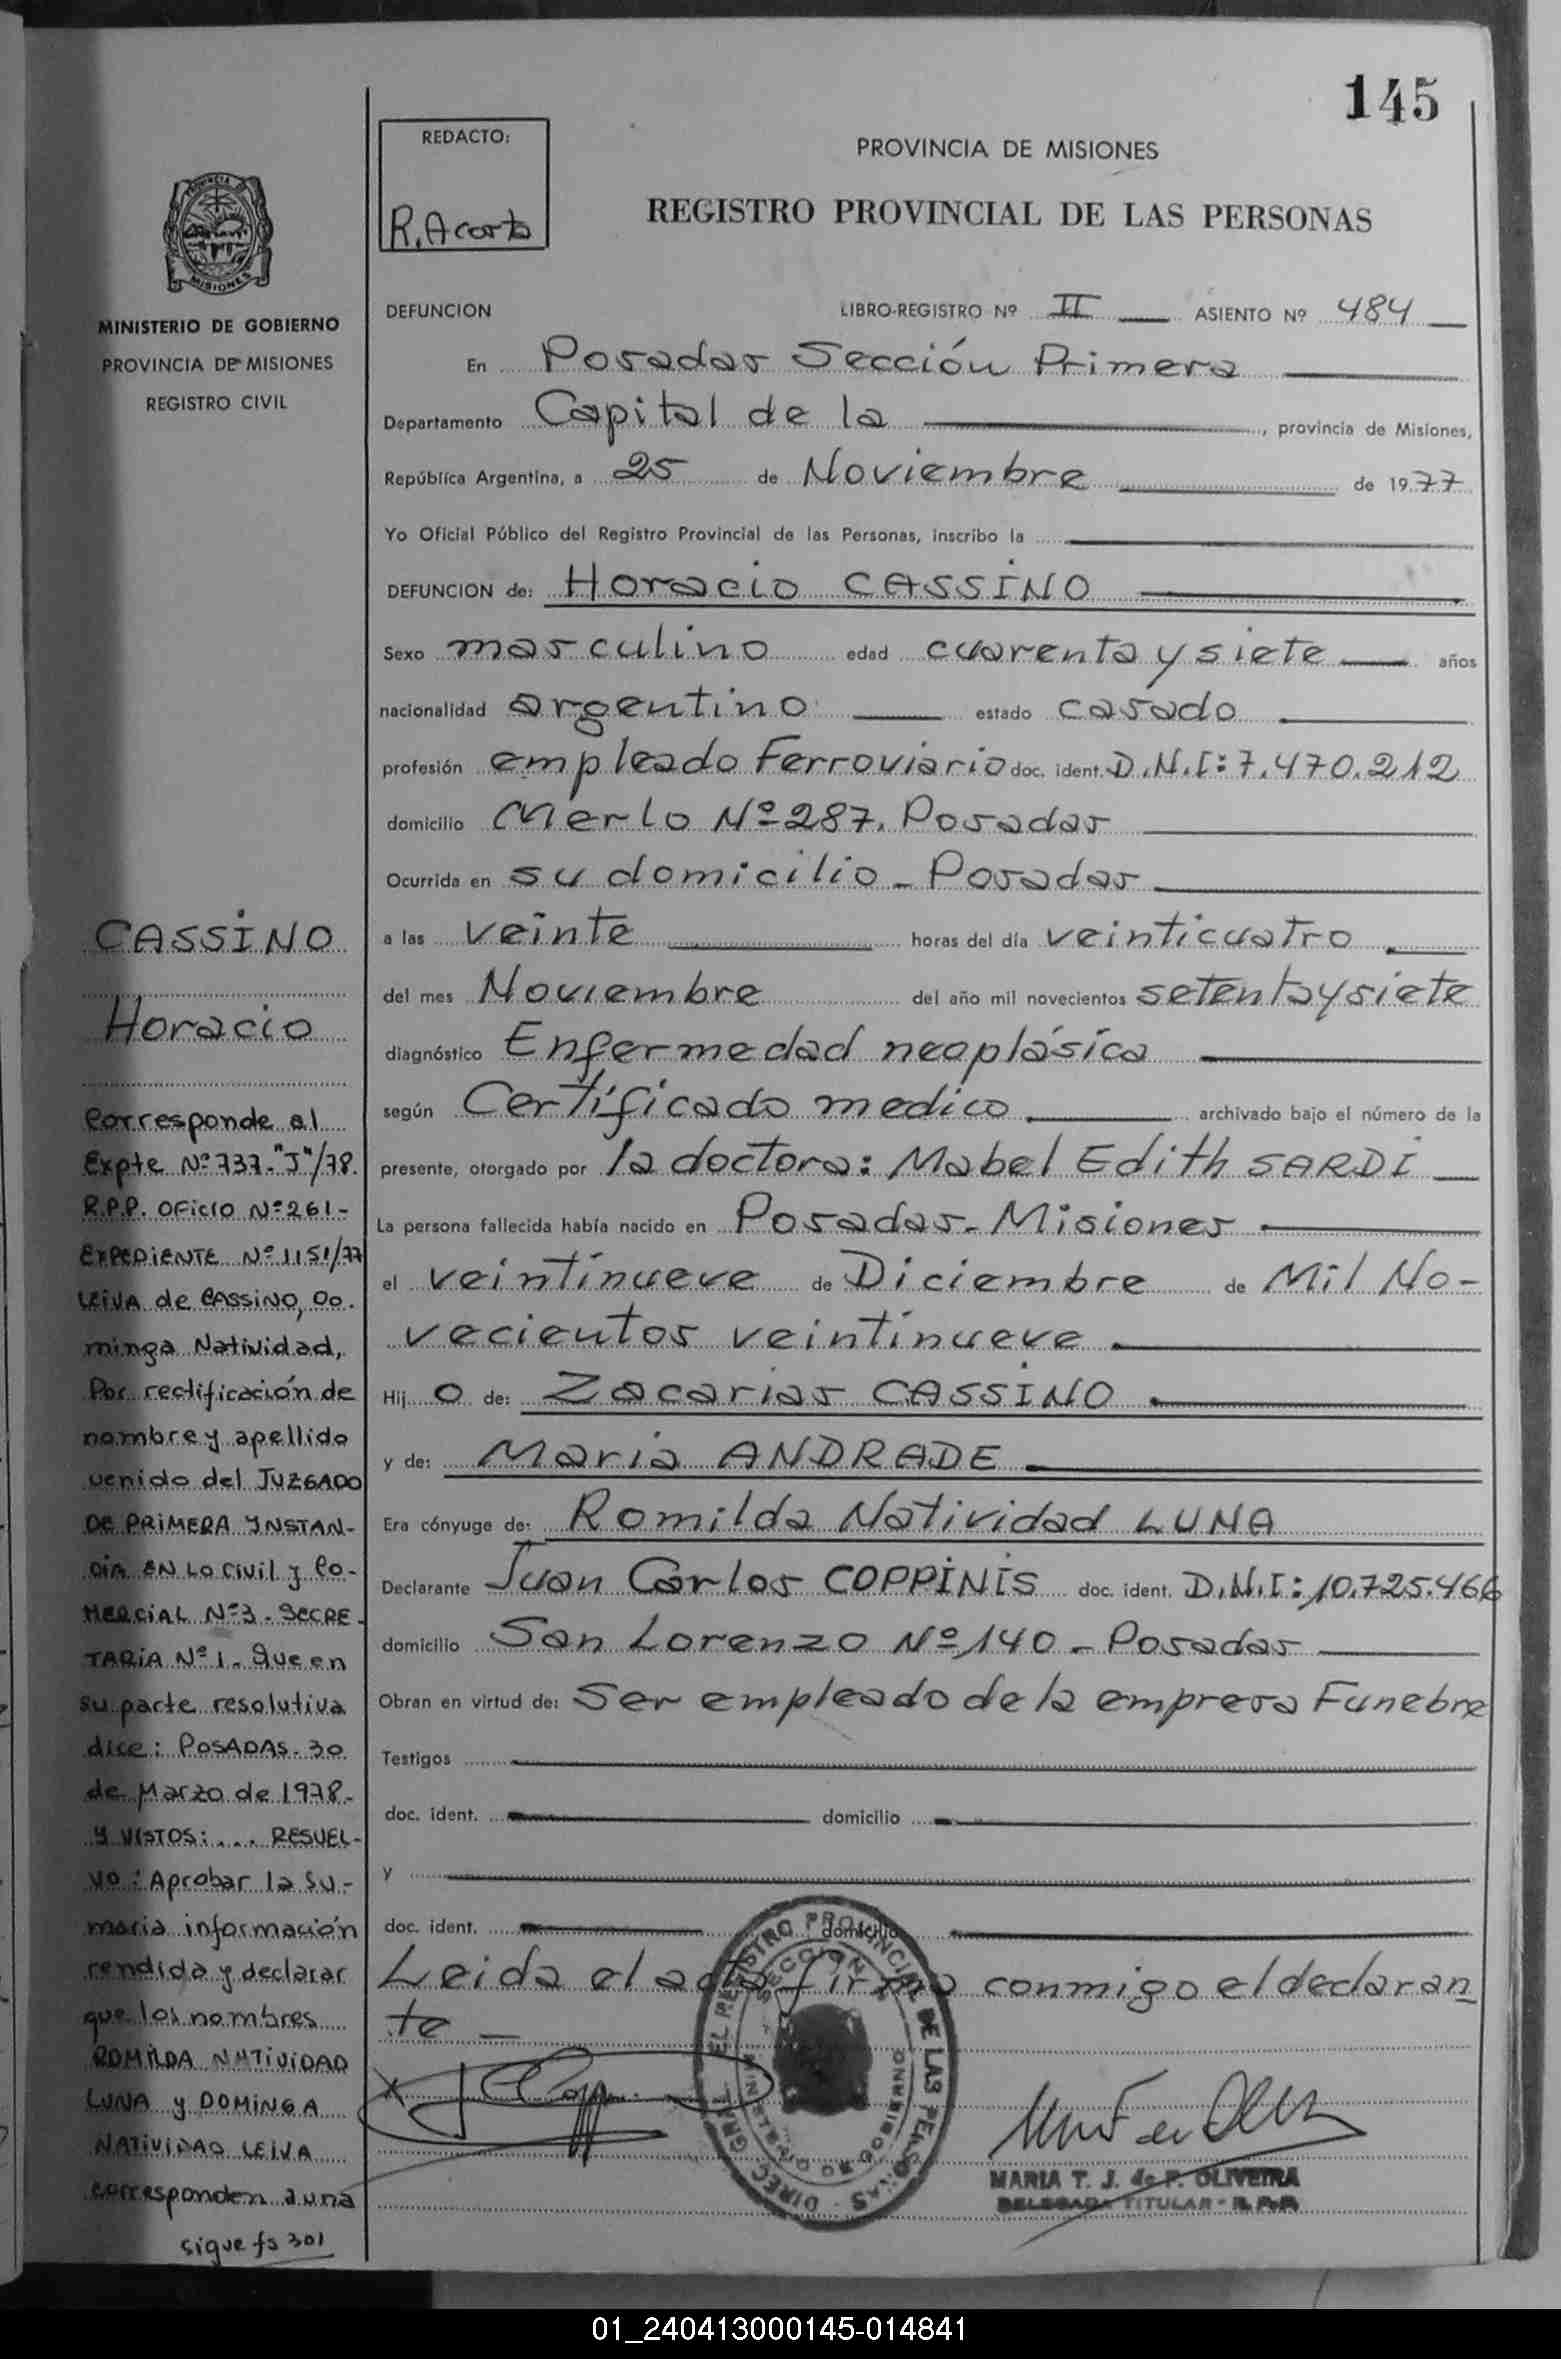 145
REDACTO:
R. Acosta
PROVINCIA DE MISIONES
REGISTRO PROVINCIAL DE LAS PERSONAS
PROVINCIA DE
MISIONES
MINISTERIO DE GOBIERNO
PROVINCIA DE MISIONES
REGISTRO CIVIL
DEFUNCION LIBRO-REGISTRO Nº II ASIENTO Nº 484
En Posadas Sección Primera
Departamento Capital de la, provincia de Misiones,
República Argentina, a 25 de Noviembre de 1977
Yo Oficial Público del Registro Provincial de las Personas, inscribo la
DEFUNCION de: Horacio CASSINO
Sexo masculino edad cuarenta y siete años
nacionalidad argentino estado casado
profesión empleado Ferroviario doc. ident. D.N.I: 7.470.212
domicilio Merlo Nº 287. Posadas
Ocurrida en su domicilio - Posadas
a las veinte horas del día veinticuatro
del mes Noviembre del año mil novecientos setenta y siete
diagnóstico Enfermedad neoplásica
según Certificado medico archivado bajo el número de la
presente, otorgado por la doctora: Mabel Edith SARDI
La persona fallecida había nacido en Posadas - Misiones
el veintinueve de Diciembre de Mil No-
vecientos veintinueve
Hij o de: Zacarias CASSINO
y de: Maria ANDRADE
Era cónyuge de: Romilda Natividad LUNA
Declarante Juan Carlos COPPINIS doc. ident. D.N.I: 10.725.466
domicilio San Lorenzo Nº 140 - Posadas
Obran en virtud de: Ser empleado de la empresa Funebre
Testigos
doc. ident. domicilio
y
doc. ident. domicilio
Leida el acta firma conmigo el declaran
te -
DIREC. GRAL. DEL REGISTRO PROVINCIAL DE LAS PERSONAS
MARIA T. J. de P. OLIVEIRA
DELEGADA TITULAR - R.P.P.
CASSINO
Horacio
Corresponde al
Expte Nº 737 - "J"/78.
R.P.P. Oficio Nº 261-
EXPEDIENTE Nº 1151/77
LEIVA de CASSINO, Do-
minga Natividad,
Por rectificación de
nombre y apellido
venido del JUZGADO
DE PRIMERA YNSTAN-
CIA EN LO Civil y Co-
MERCIAL Nº 3 - SECRE-
TARIA Nº 1 - Que en
su parte resolutiva
dice: POSADAS - 30
de Marzo de 1978.-
Y VISTOS: ... RESUEL-
VO: Aprobar la Su-
maria información
rendida y declarar
que los nombres
ROMILDA NATIVIDAD
LUNA y DOMINGA
NATIVIDAD LEIVA
corresponden a una
sigue fs 301
01_240413000145-014841